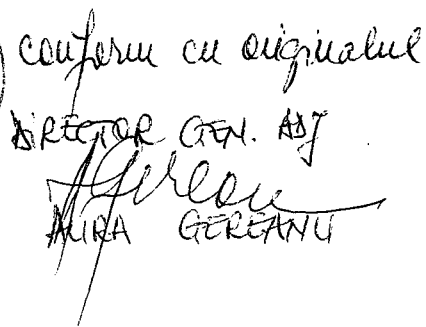 conform cu originalul
DIRECTOR GEN. ADJ
GEREANU